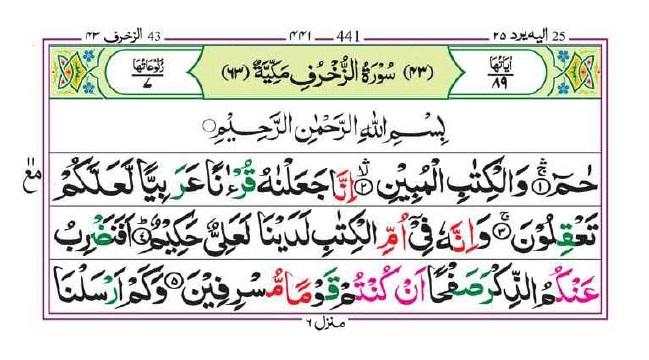 25 الیه یرد ۲۵ 441 ۴۴۱ 43 الزخرف ۴۳
اٰیَاتُهَا ۸۹ (۴۳) سُوْرَةُ الزُّخْرُفِ مَكِّيَّةٌ (۶۳) رُكُوْعَاتُهَا ۷
بِسْمِ اللّٰهِ الرَّحْمٰنِ الرَّحِيْمِ
حٰمٓ ۚ۱ وَالْكِتٰبِ الْمُبِيْنِ ۙ۲ اِنَّا جَعَلْنٰهُ قُرْءٰنًا عَرَبِيًّا لَّعَلَّكُمْ
تَعْقِلُوْنَ ۚ۳ وَاِنَّهٗ فِيْٓ اُمِّ الْكِتٰبِ لَدَيْنَا لَعَلِيٌّ حَكِيْمٌ ؕ۴ اَفَنَضْرِبُ
عَنْكُمُ الذِّكْرَ صَفْحًا اَنْ كُنْتُمْ قَوْمًا مُّسْرِفِيْنَ ۵ وَكَمْ اَرْسَلْنَا
منزل ۶